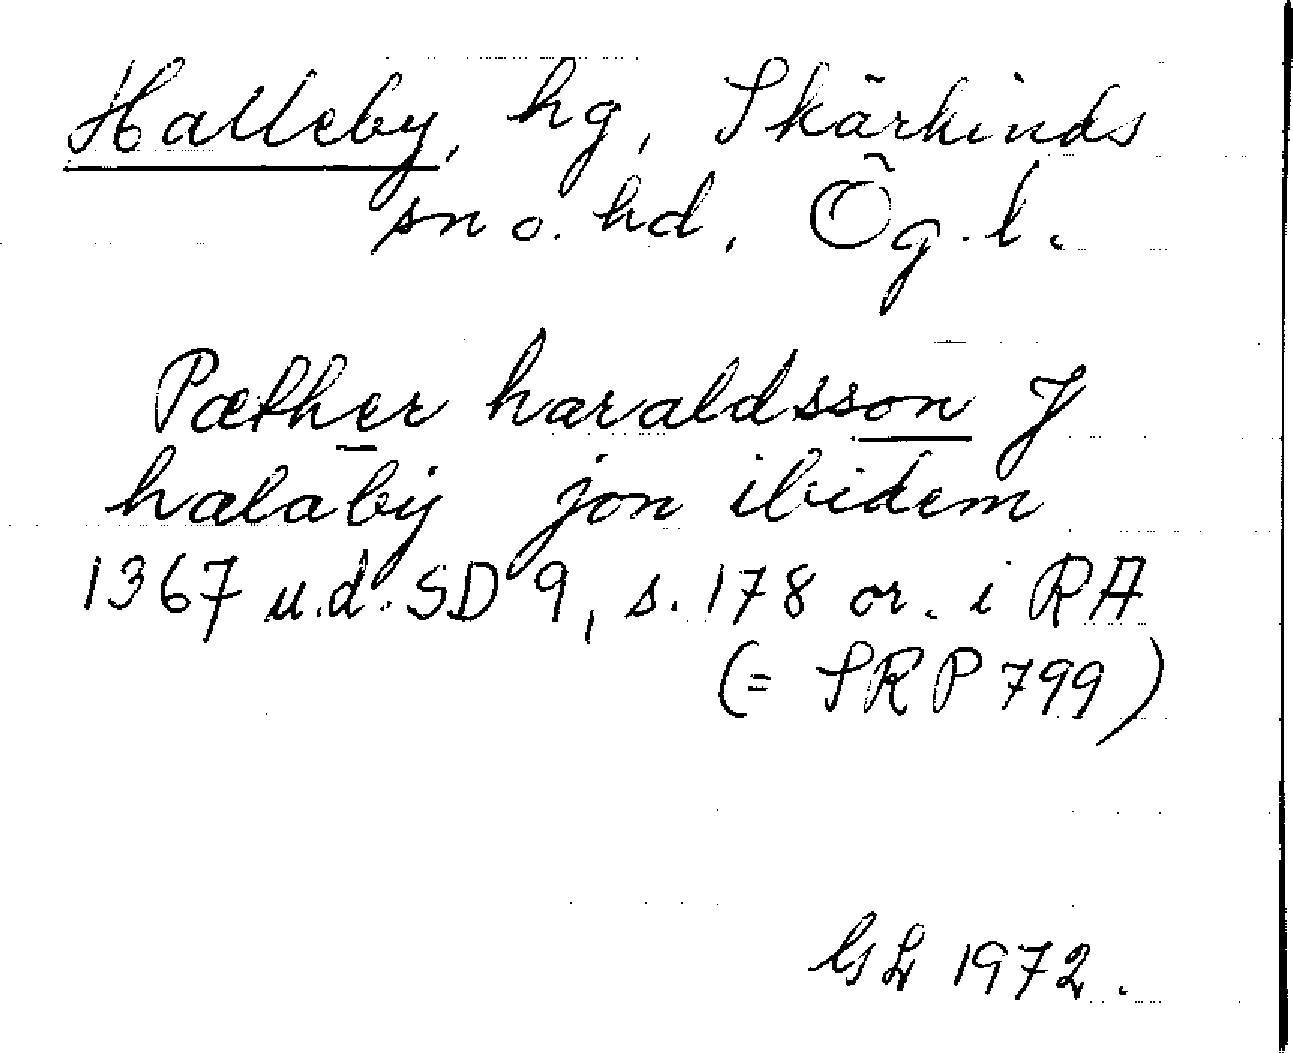 Halleby, hg, Skärkinds
sn o. hd, Ög.l.
Pæther haraldsson J
halaby jon ibidem
1367 u.d. SD 9, s. 178 or. i RA
(= SRP 799)
GL 1972.